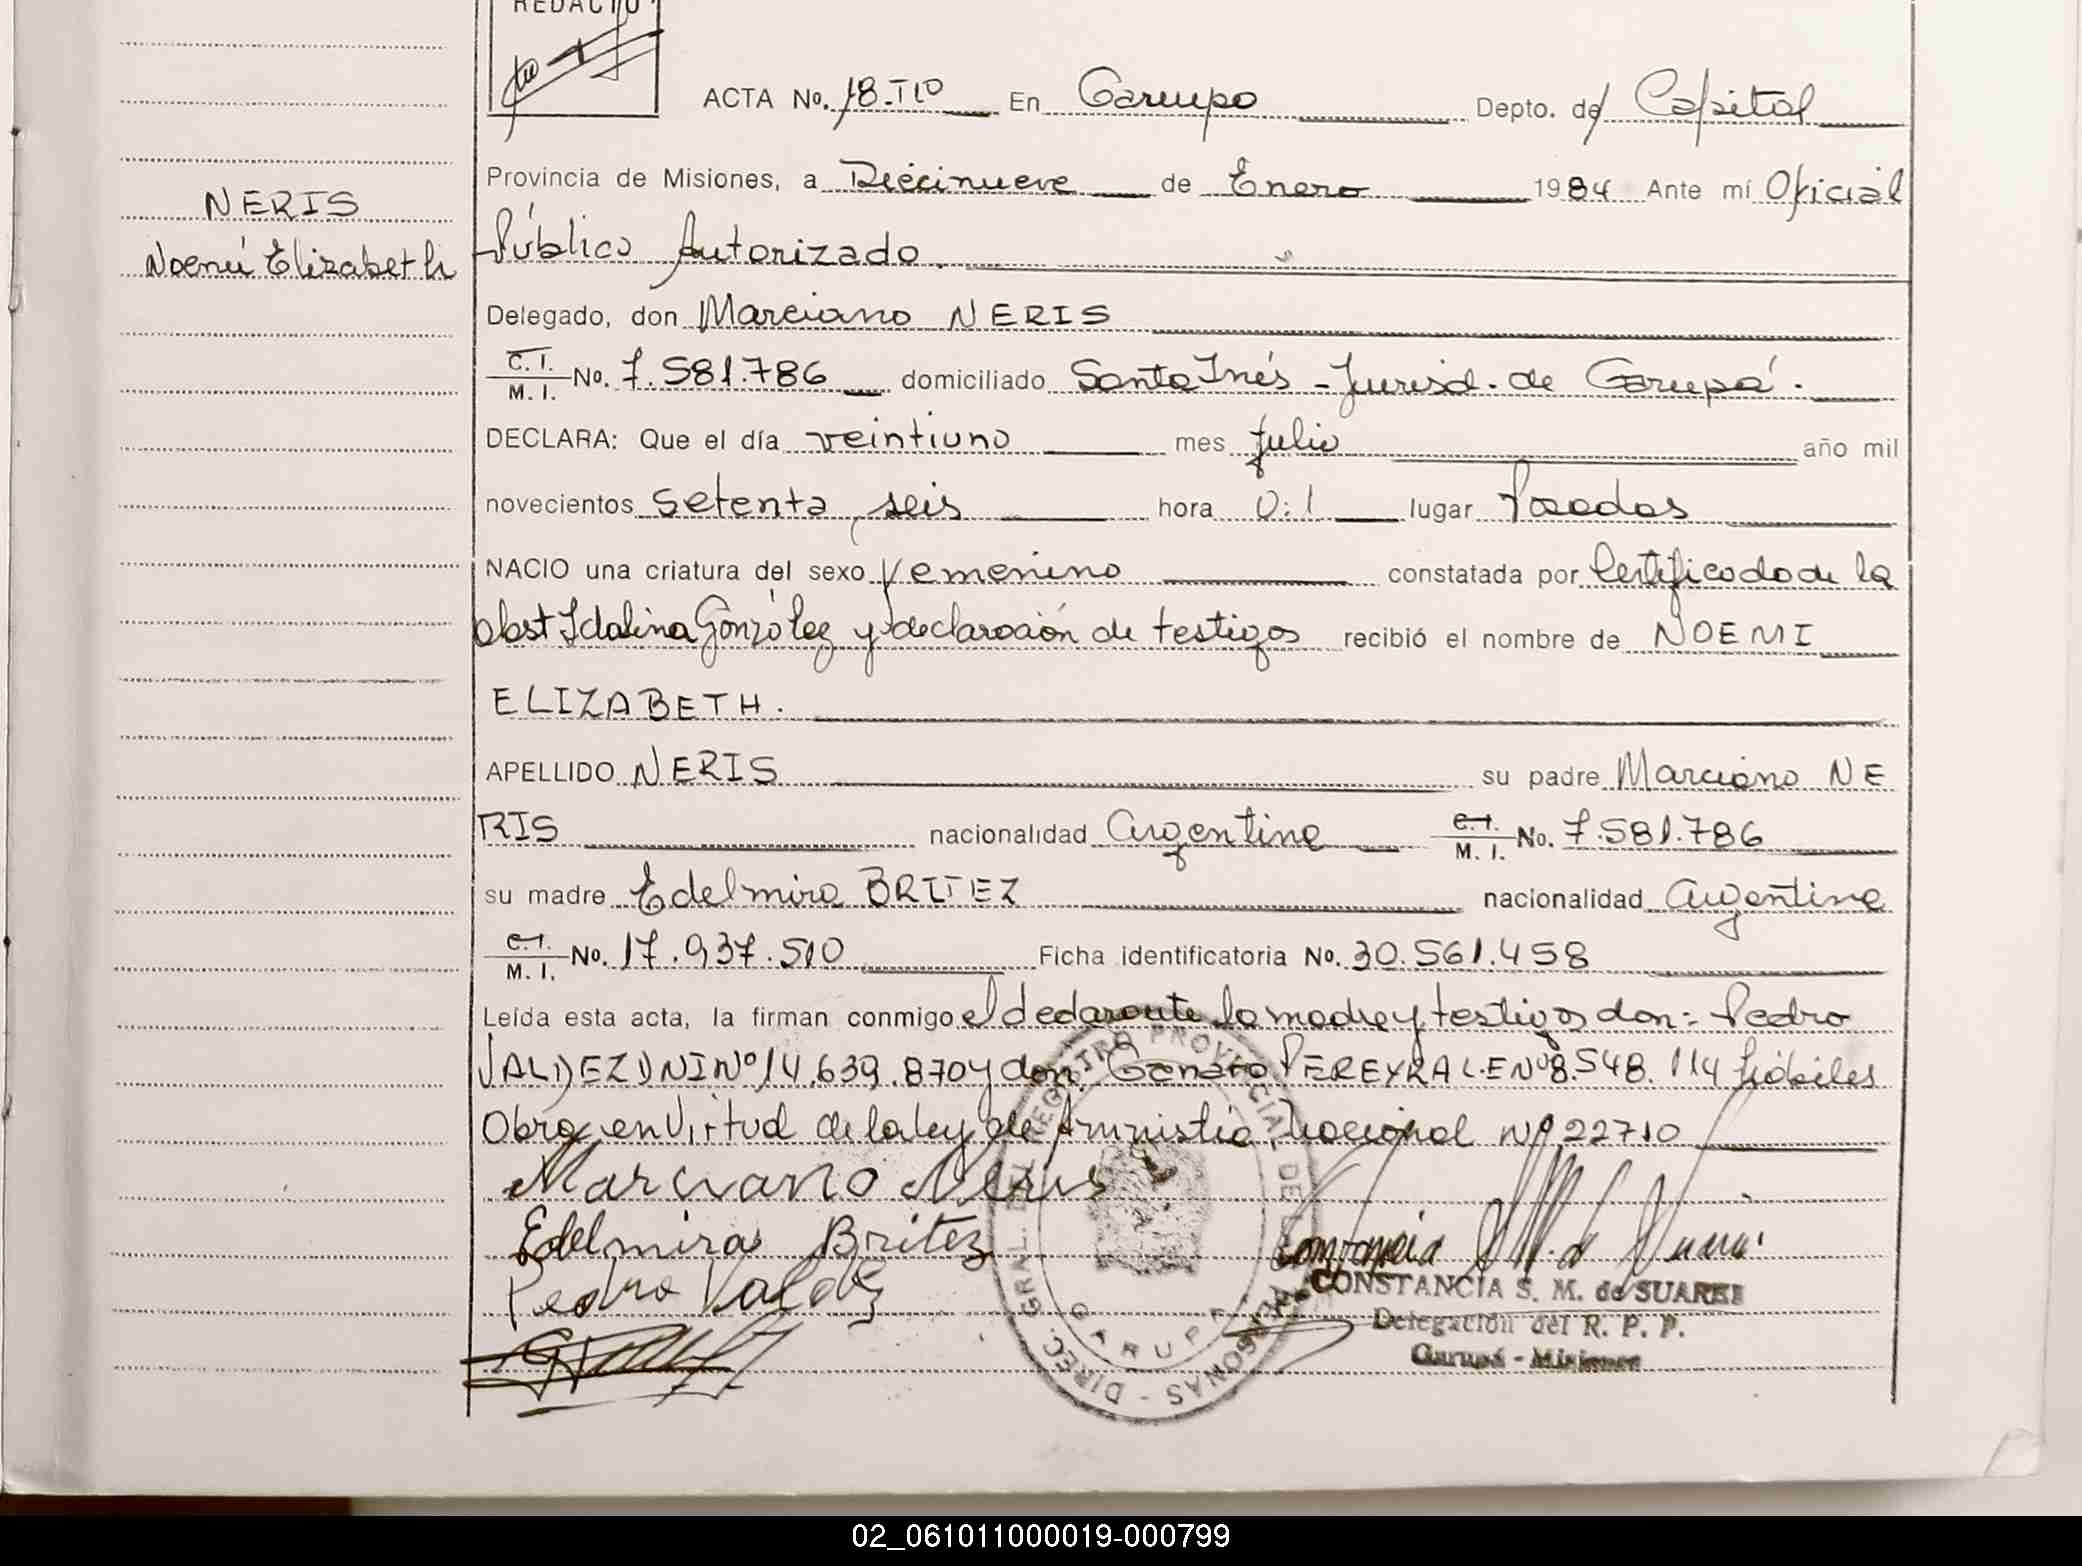 REDACTO
ACTA No. 18-Tº En Garupá Depto. de Capital
Provincia de Misiones, a Diecinueve de Enero 1984 Ante mí Oficial
NERIS
Noemí Elizabeth
Público Autorizado.
Delegado, don Marciano NERIS
C. I. M. I. No. 7.581.786 domiciliado Santa Inés - Jurisd. de Garupá.
DECLARA: Que el día veintiuno mes julio año mil
novecientos setenta, seis hora 0:1 lugar Posadas
NACIO una criatura del sexo femenino constatada por Certificado de la
obst Idalina González y declaración de testigos recibió el nombre de NOEMI
ELIZABETH.
APELLIDO NERIS su padre Marciano NE
RIS nacionalidad argentina C. I. M. I. No. 7.581.786
su madre Edelmira BRITEZ nacionalidad argentina
C. I. M. I. No. 17.937.510 Ficha identificatoria No. 30.561.458
Leída esta acta, la firman conmigo el declarante la madre y testigos don: Pedro
VALDEZ DNI Nº 14.639.870 y don Genaro PEREYRA L.E Nº 8.548.114 hábiles
Obra en Virtud de la ley de Amnistía Nacional Nº 22710
Marciano Neris
Edelmira Britez
Pedro Valdez
CONSTANCIA S. M. de SUAREZ
Delegación del R. P. P.
Garupá - Misiones
DIREC. GRAL. DEL REGISTRO PROVINCIAL DE LAS PERSONAS
GARUPA
02_061011000019-000799